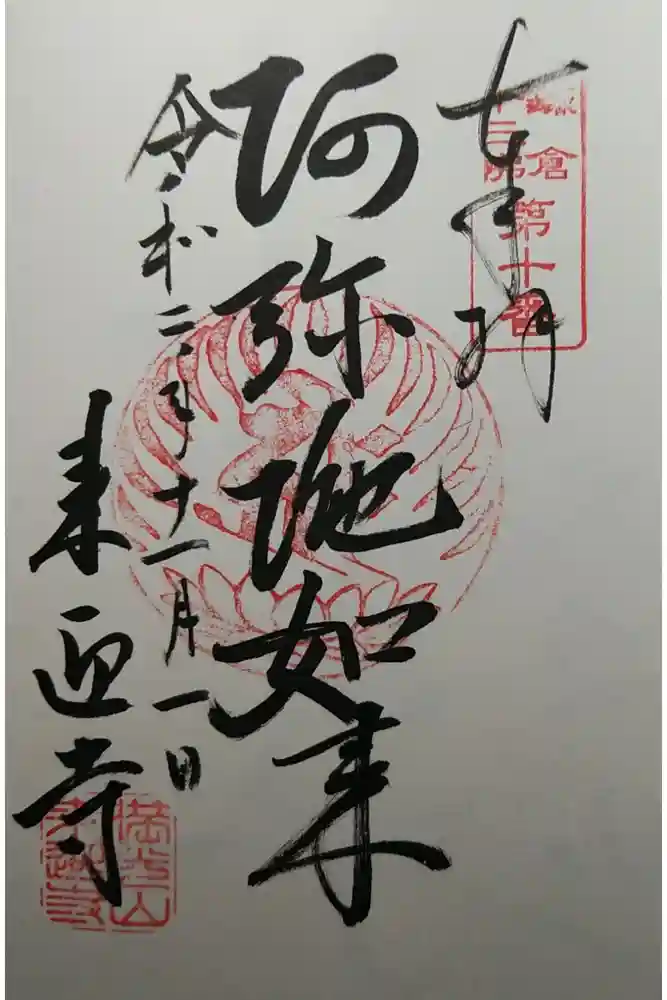 鎌倉
十三佛
第十番
奉拝
阿弥陀如来
令和二年十一月一日
来迎寺
満光山
来迎寺